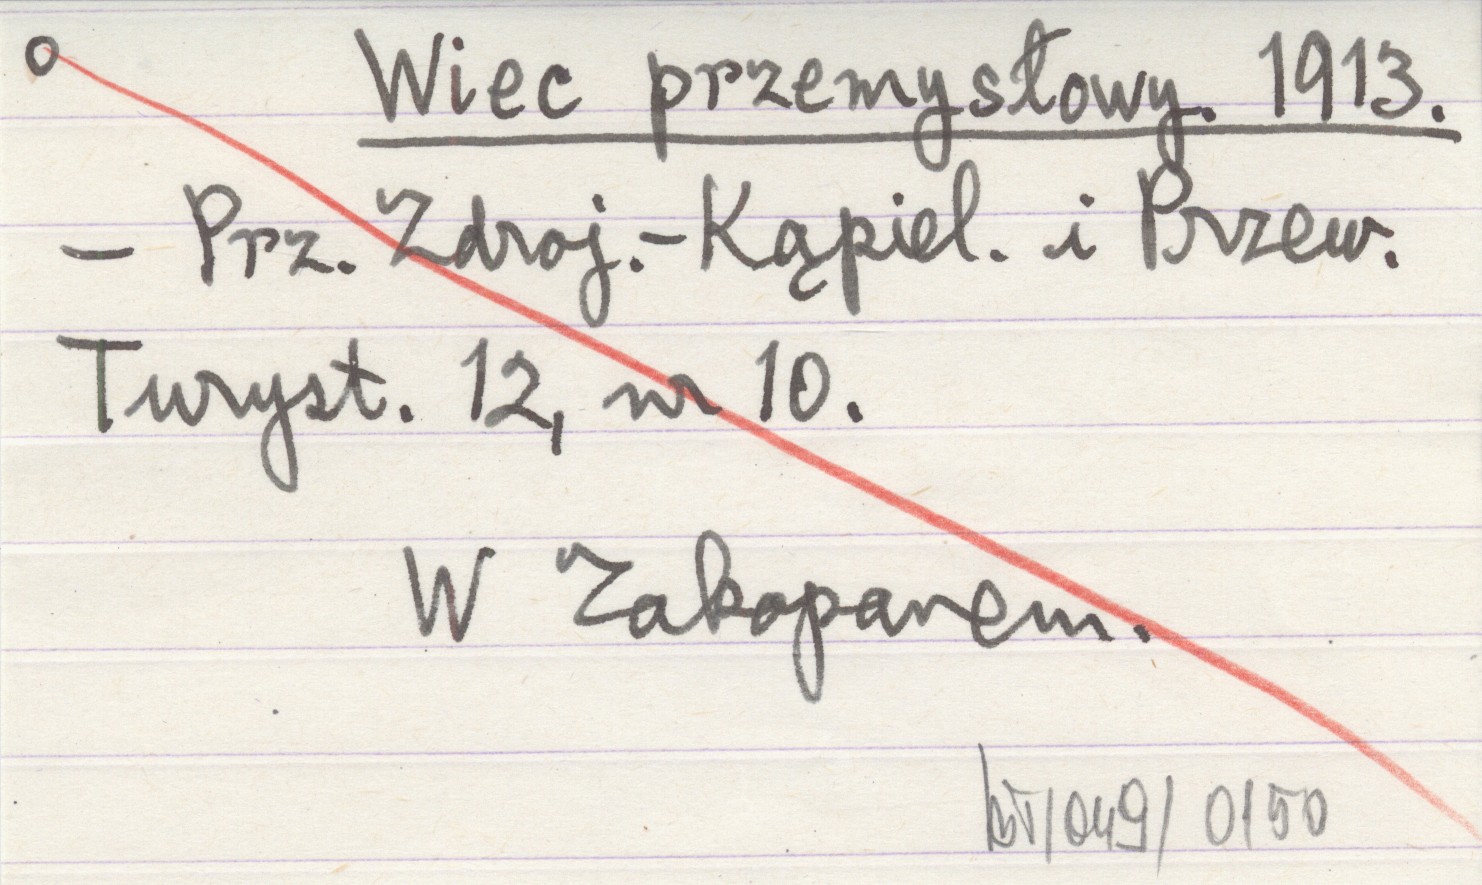 o Wiec przemysłowy. 1913.
- Prz. Zdroj.-Kąpiel. i Przew.
Turyst. 12, nr 10.
W Zakopanem.
/049/ 0150